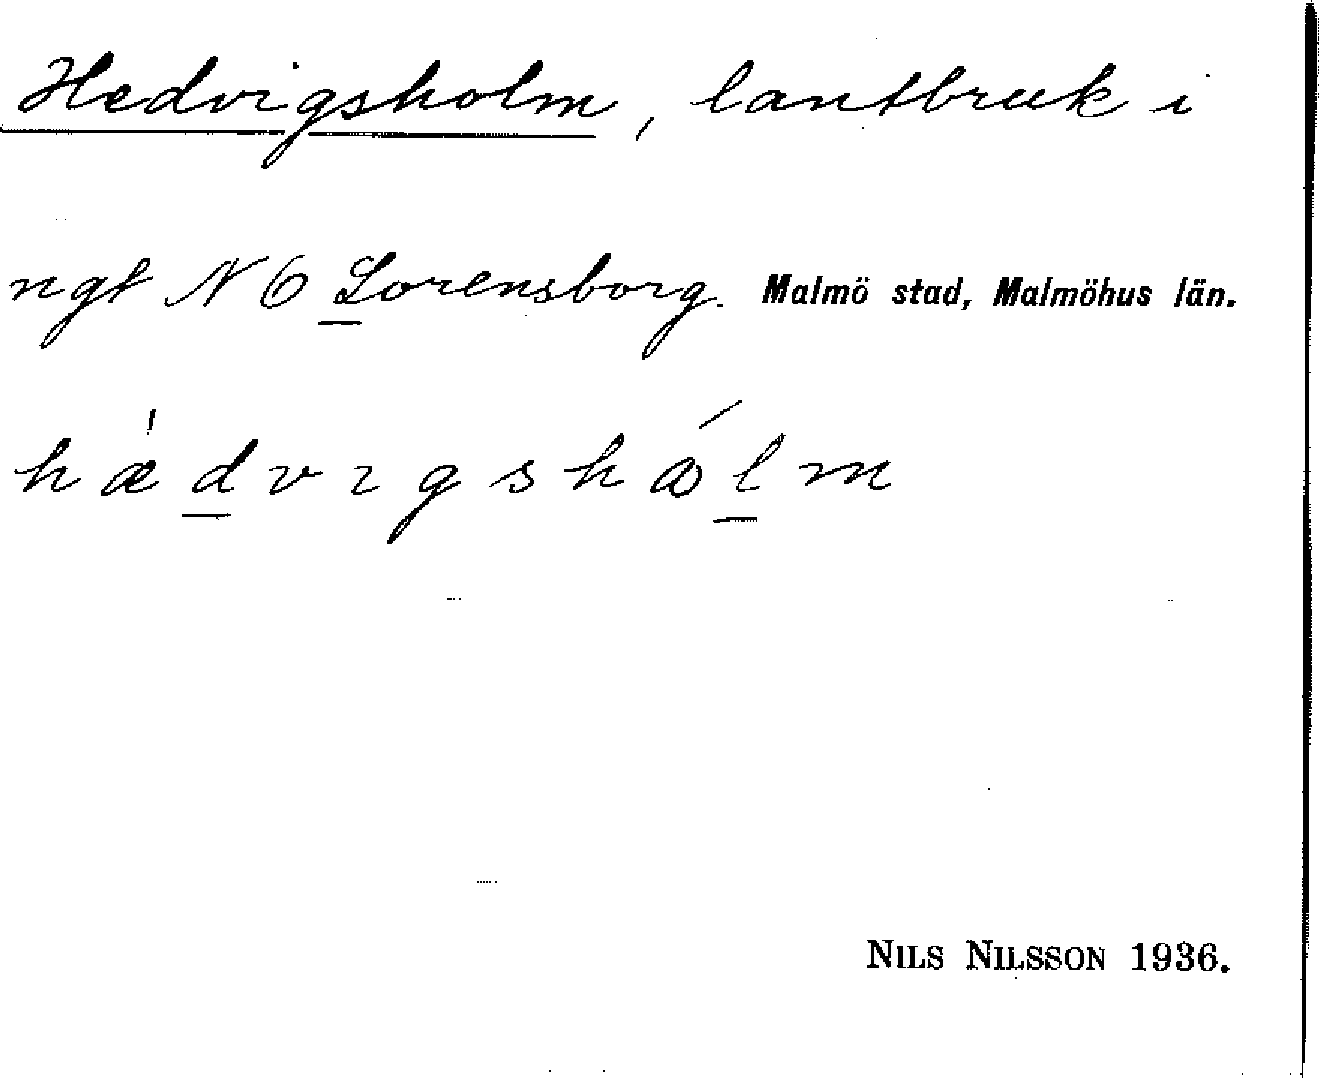 Hedvigsholm, lantbruk i
ngt N 6 Lorensborg. Malmö stad, Malmöhus län.
hæ̍dvɪgshɑ́lm
NILS NILSSON 1936.